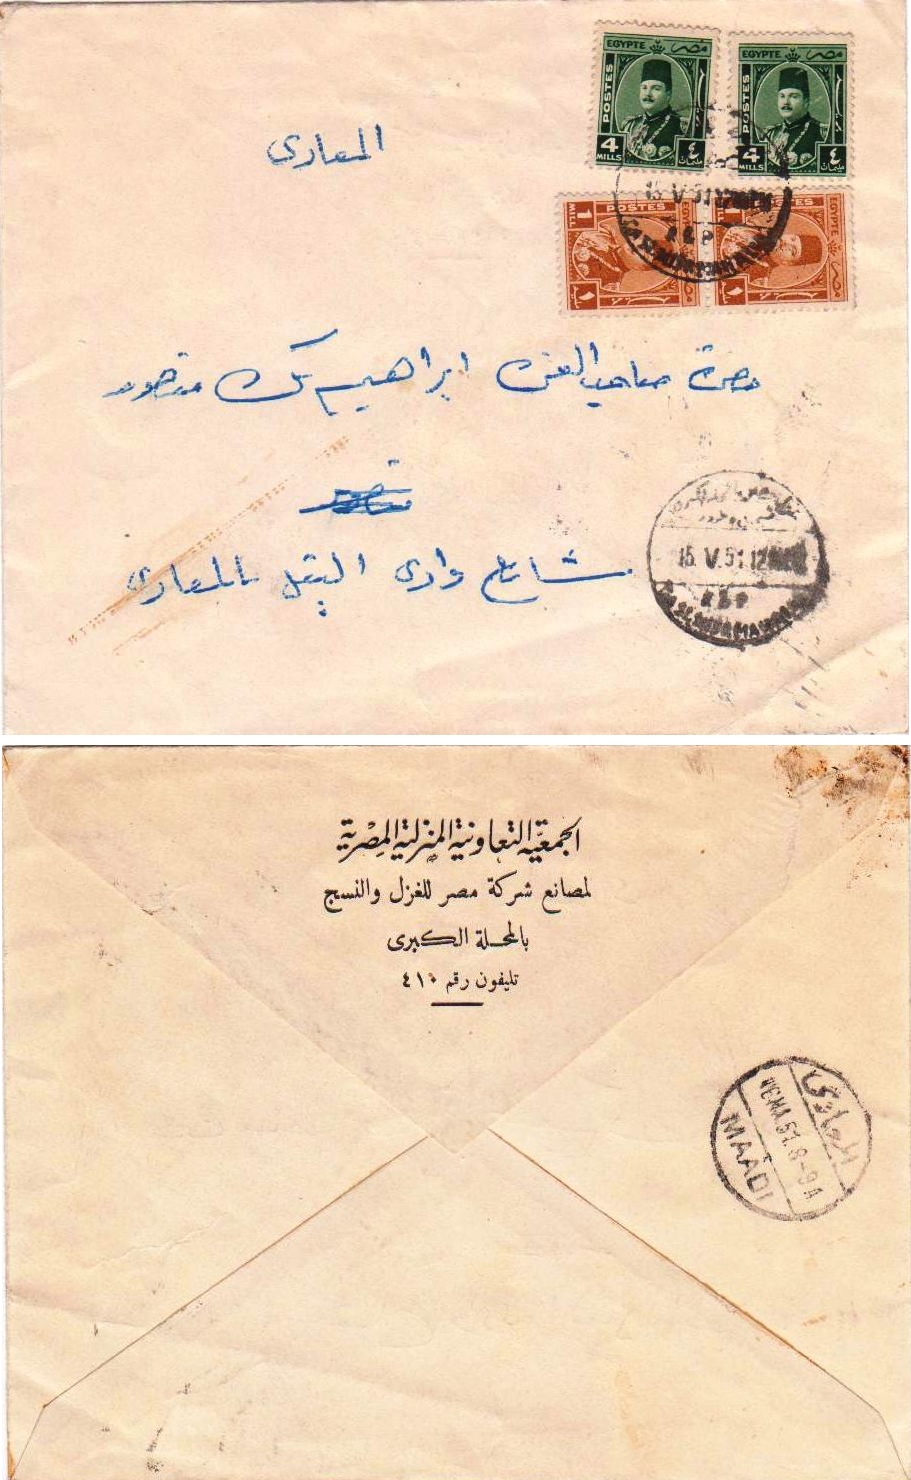 EGYPTE مصر
POSTES
4 MILLS ٤ مليمات
EGYPTE مصر
4 MILLS ٤ مليمات
MILL. 1 POSTES
EGYPTE مصر
15 V 51 12
المعادى
حضرة صاحب العزة ابراهيم بك منصور
شارع وادى النيل بالمعادى
15. V. 51. 12
الجمعية التعاونية المنزلية المصرية
لمصانع شركة مصر للغزل والنسج
بالمحلة الكبرى
تليفون رقم ٤١٠
المعادى
MA. 51. 8-9A
MAADI